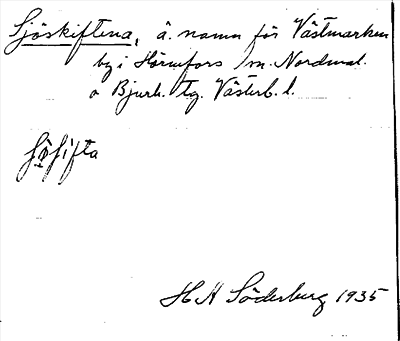 Sjöskiftena, ä. namn för Västmarken
by i Hörnefors sn. Nordmal.
o Bjurh. tg. Västerb. l.
H A Söderberg 1935